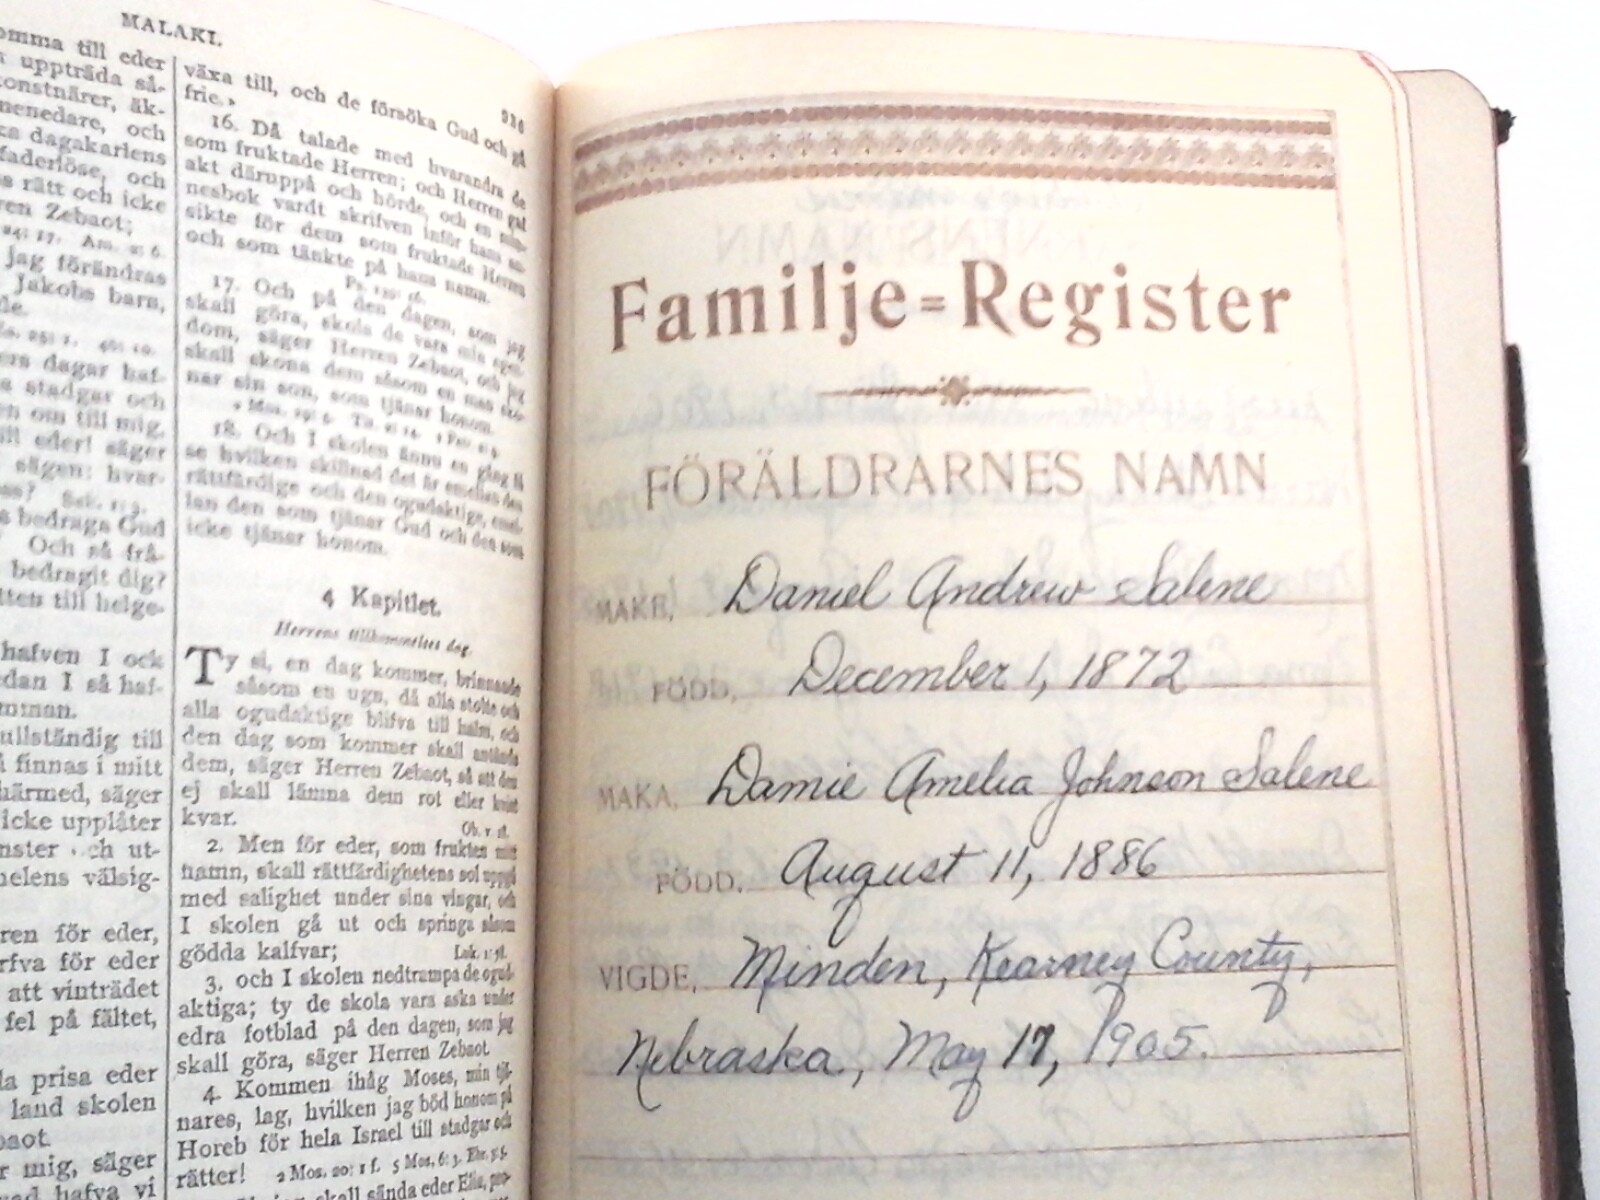 MALAKI.
936
omma till eder
uppträda så-
konstnärer, äk-
menedare, och
ka dagakarlens
faderlöse, och
rätt och icke
ren Zebaot;
Am. 2: 6.
jag förändras
Jakobs barn,
de.
dagar haf-
stadgar och
om till mig,
till eder! säger
sägen: hvar-
Sak. 1: 3.
bedraga Gud
Och så frå-
bedragit dig?
till helge-
hafven I ock
edan I så haf-
mman.
ullständig till
finnas i mitt
härmed, säger
icke upplåter
nster och ut-
elens välsig-
ren för eder,
rfva för eder
att vinträdet
fel på fältet,
la prisa eder
land skolen
baot.
r mig, säger
hafva vi
växa till, och de försöka Gud och gå
frie.»
16. Då talade med hvarandra de
som fruktade Herren; och Herren gaf
akt däruppå och hörde, och en min-
nesbok vardt skrifven inför hans an-
sikte för dem som fruktade Herren
och som tänkte på hans namn.
17. Och på den dagen, som jag
skall göra, skola de vara min egen-
dom, säger Herren Zebaot, och jag
skall skona dem såsom en man sko-
nar sin son, som tjänar honom.
18. Och I skolen ännu en gång få
se hvilken skillnad det är emellan den
rättfärdige och den ogudaktige, emel-
lan den som tjänar Gud och den som
icke tjänar honom.
4 Kapitlet.
Herrens tillkommelses dag.
Ty si, en dag kommer, brinnande
såsom en ugn, då alla stolte och
alla ogudaktige blifva till halm, och
den dag som kommer skall antända
dem, säger Herren Zebaot, så att den
ej skall lämna dem rot eller kvist
kvar.
Ob. v. 18.
2. Men för eder, som frukten mitt
namn, skall rättfärdighetens sol uppgå
med salighet under sina vingar, och
I skolen gå ut och springa såsom
gödda kalfvar;
Luk. 1: 78.
3. och I skolen nedtrampa de ogud-
aktiga; ty de skola vara aska under
edra fotblad på den dagen, som jag
skall göra, säger Herren Zebaot.
4. Kommen ihåg Moses, min tjä-
nares, lag, hvilken jag böd honom på
Horeb för hela Israel till stadgar och
rätter!
2 Mos. 20: 1 f. 5 Mos. 6: 3.
skall sända eder Elia, pro-
Familje=Register
FÖRÄLDRARNES NAMN
MAKE, Daniel Andrew Salene
FÖDD, December 1, 1872
MAKA, Damie Amelia Johnson Salene
FÖDD, August 11, 1886
VIGDE, Minden, Kearney County,
Nebraska, May 17, 1905.